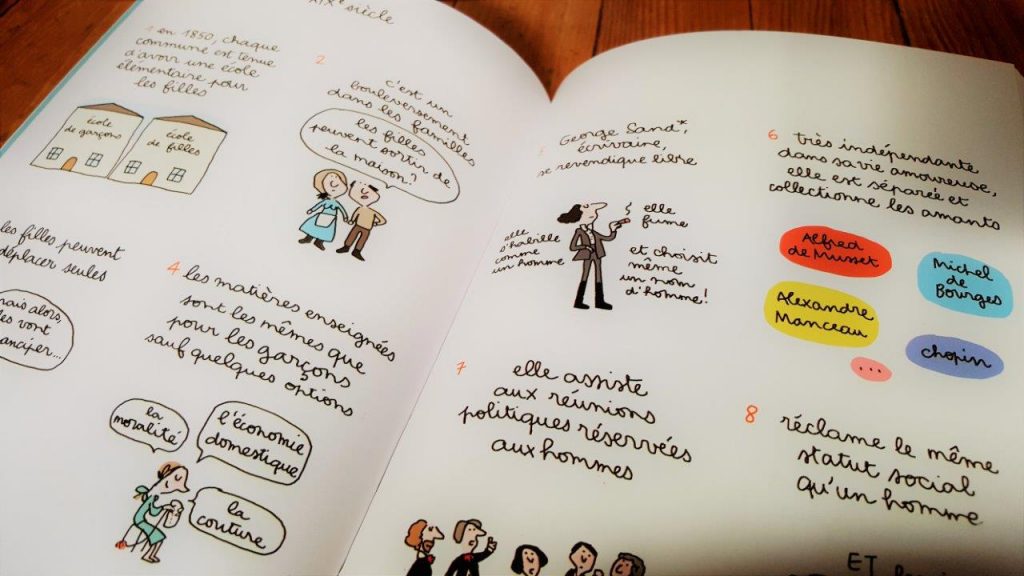 XIXe siècle
1 en 1850, chaque
commune est tenue
d'avoir une école
élémentaire pour
les filles
école
de garçons
école
de filles
2
c'est un
bouleversement
dans les familles
les filles
peuvent sortir de
la maison?
les filles peuvent
déplacer seules
mais alors,
vont
4 les matières enseignées
sont les mêmes que
pour les garçons
sauf quelques options
la
moralité
l'économie
domestique
la
couture
5
George Sand*,
écrivaine,
se revendique libre
elle
s'habille
comme
un homme
elle
fume
et choisit
même
un nom
d'homme!
6 très indépendante
dans sa vie amoureuse,
elle est séparée et
collectionne les amants
Alfred
de Musset
Michel
de
Bourges
Alexandre
Manceau
chopin
...
7
elle assiste
aux réunions
politiques réservées
aux hommes
8 réclame le même
statut social
qu'un homme
ET